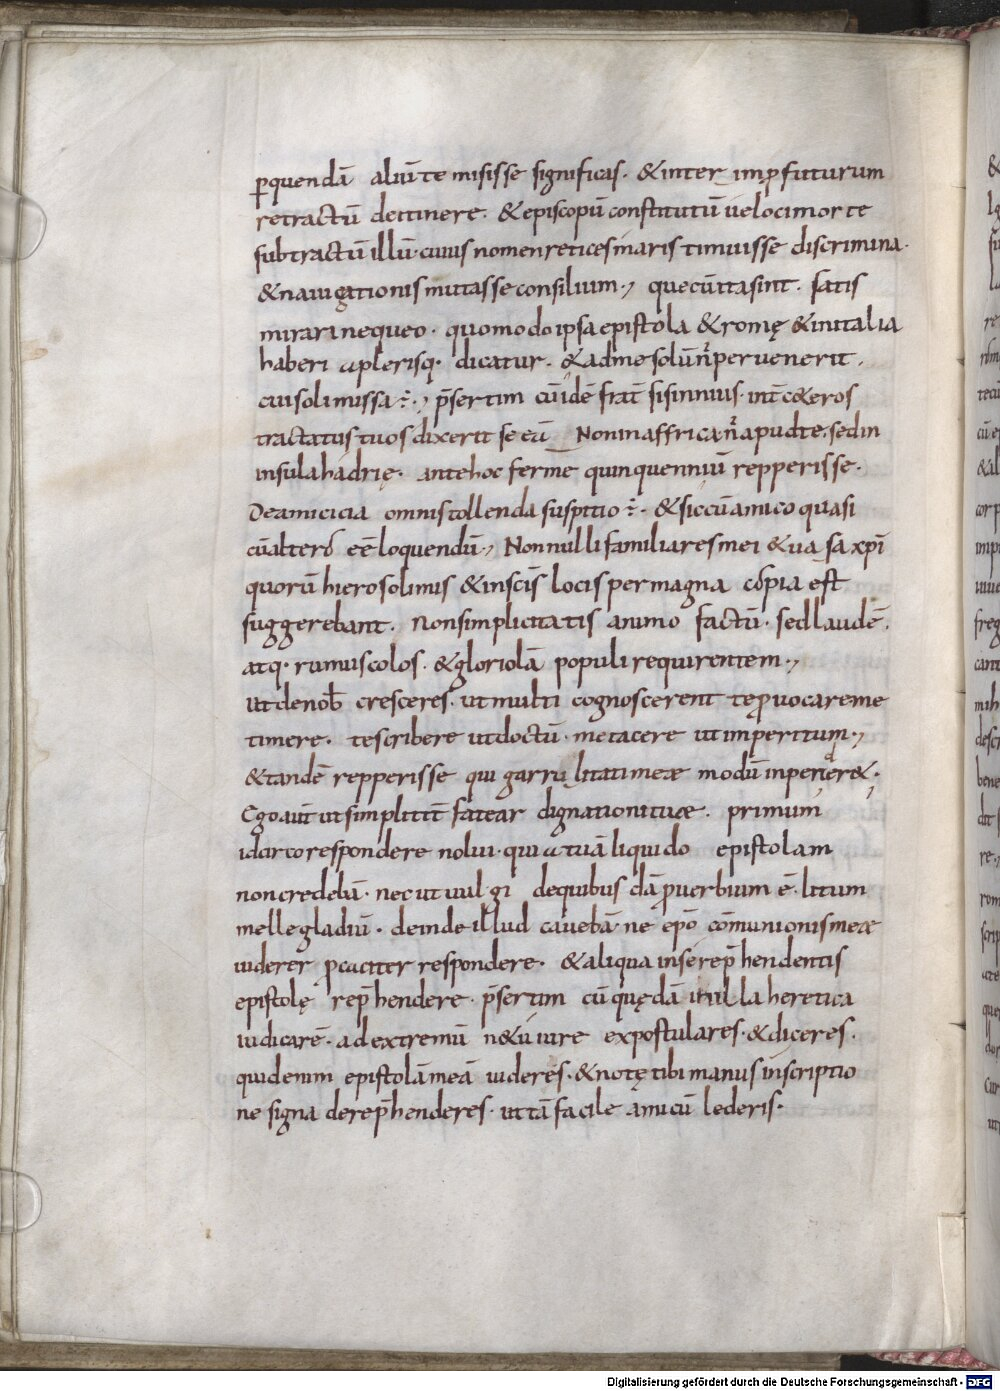 ꝑquendā aluīte misisse significas· &inter imꝓfuturum
retractū detinere· &episcopū constitutū uelocimorte
subtractū illū·cuius nomenreticesmaris timuisse discrimina·
&nauigationis mutasse consilium·, quecūitasint· satis
mirarinequeo· quomodo ipsaepistola &romę &initalia
haberi aplerisq· dicatur· &admesolūn̄peruenerit·
cuisolimissa ÷·, p̄sertim cūidē frat̄ sisinnius· int̄c&eros
tractatus tuos dixerit se eā Noninaffrican̄apudte·sedin
insulahadrię· antehoc ferme quinquenniū repperisse·
Deamicicia omnistollenda suspitio ÷· &siccūamico quasi
cūalterō eē loquendū, Nonnulli familiaresmei &uasa xp̄i
quorū hierosolimis &insc̄is locis permagna copia est
suggerebant· Nonsimplicitatis animo factū· sedlaudē·
atq· rumuscolos· &gloriolā populi requirentem·,
Utdenob̄ cresceres· ut multi cognoscerent teꝓuocareme
timere· tescribere utdoctū· metacere utimperitum·,
&tandē repperisse qui garrulitatimeae modū inponer&·
Egoaut̄ utsimplicit̄ fatear dignationituae· primum
idcircorespondere nolui· quia tuā liquido epistolam
noncredebā· nec ut uulgi dequibusdā ꝓuerbium ē· litum
mellegladiū· deinde illud cauebā ne epō cōmunionismeae
uiderer ꝓcaciter respondere· &aliqua inserep̄hendentis
epistolę rep̄hendere· p̄sertim cū quędā inilla heretica
iudicarē· adextremū n&uiure expostulares·&diceres·
quidenim epistolāmeā uideres·&notętibi manus inscriptio
ne signa derep̄henderes· uttā facile amicū lederis·
Digitalisierung gefördert durch die Deutsche Forschungsgemeinschaft - DFG